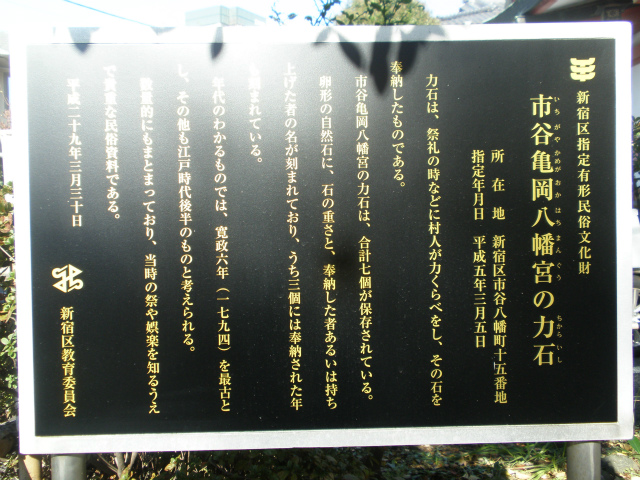 新宿区指定有形民俗文化財
いちがやかめがおかはちまんぐう ちからいし
市谷亀岡八幡宮の力石
所在地 新宿区市谷八幡町十五番地
指定年月日 平成五年三月五日
力石は、祭礼の時などに村人が力くらべをし、その石を
奉納したものである。
市谷亀岡八幡宮の力石は、合計七個が保存されている。
卵形の自然石に、石の重さと、奉納した者あるいは持ち
上げた者の名が刻まれており、うち三個には奉納された年
も刻まれている。
年代のわかるものでは、寛政六年(一七九四)を最古と
し、その他も江戸時代後半のものと考えられる。
数量的にもまとまっており、当時の祭や娯楽を知るうえ
で貴重な民俗資料である。
平成二十九年三月三十日
新宿区教育委員会